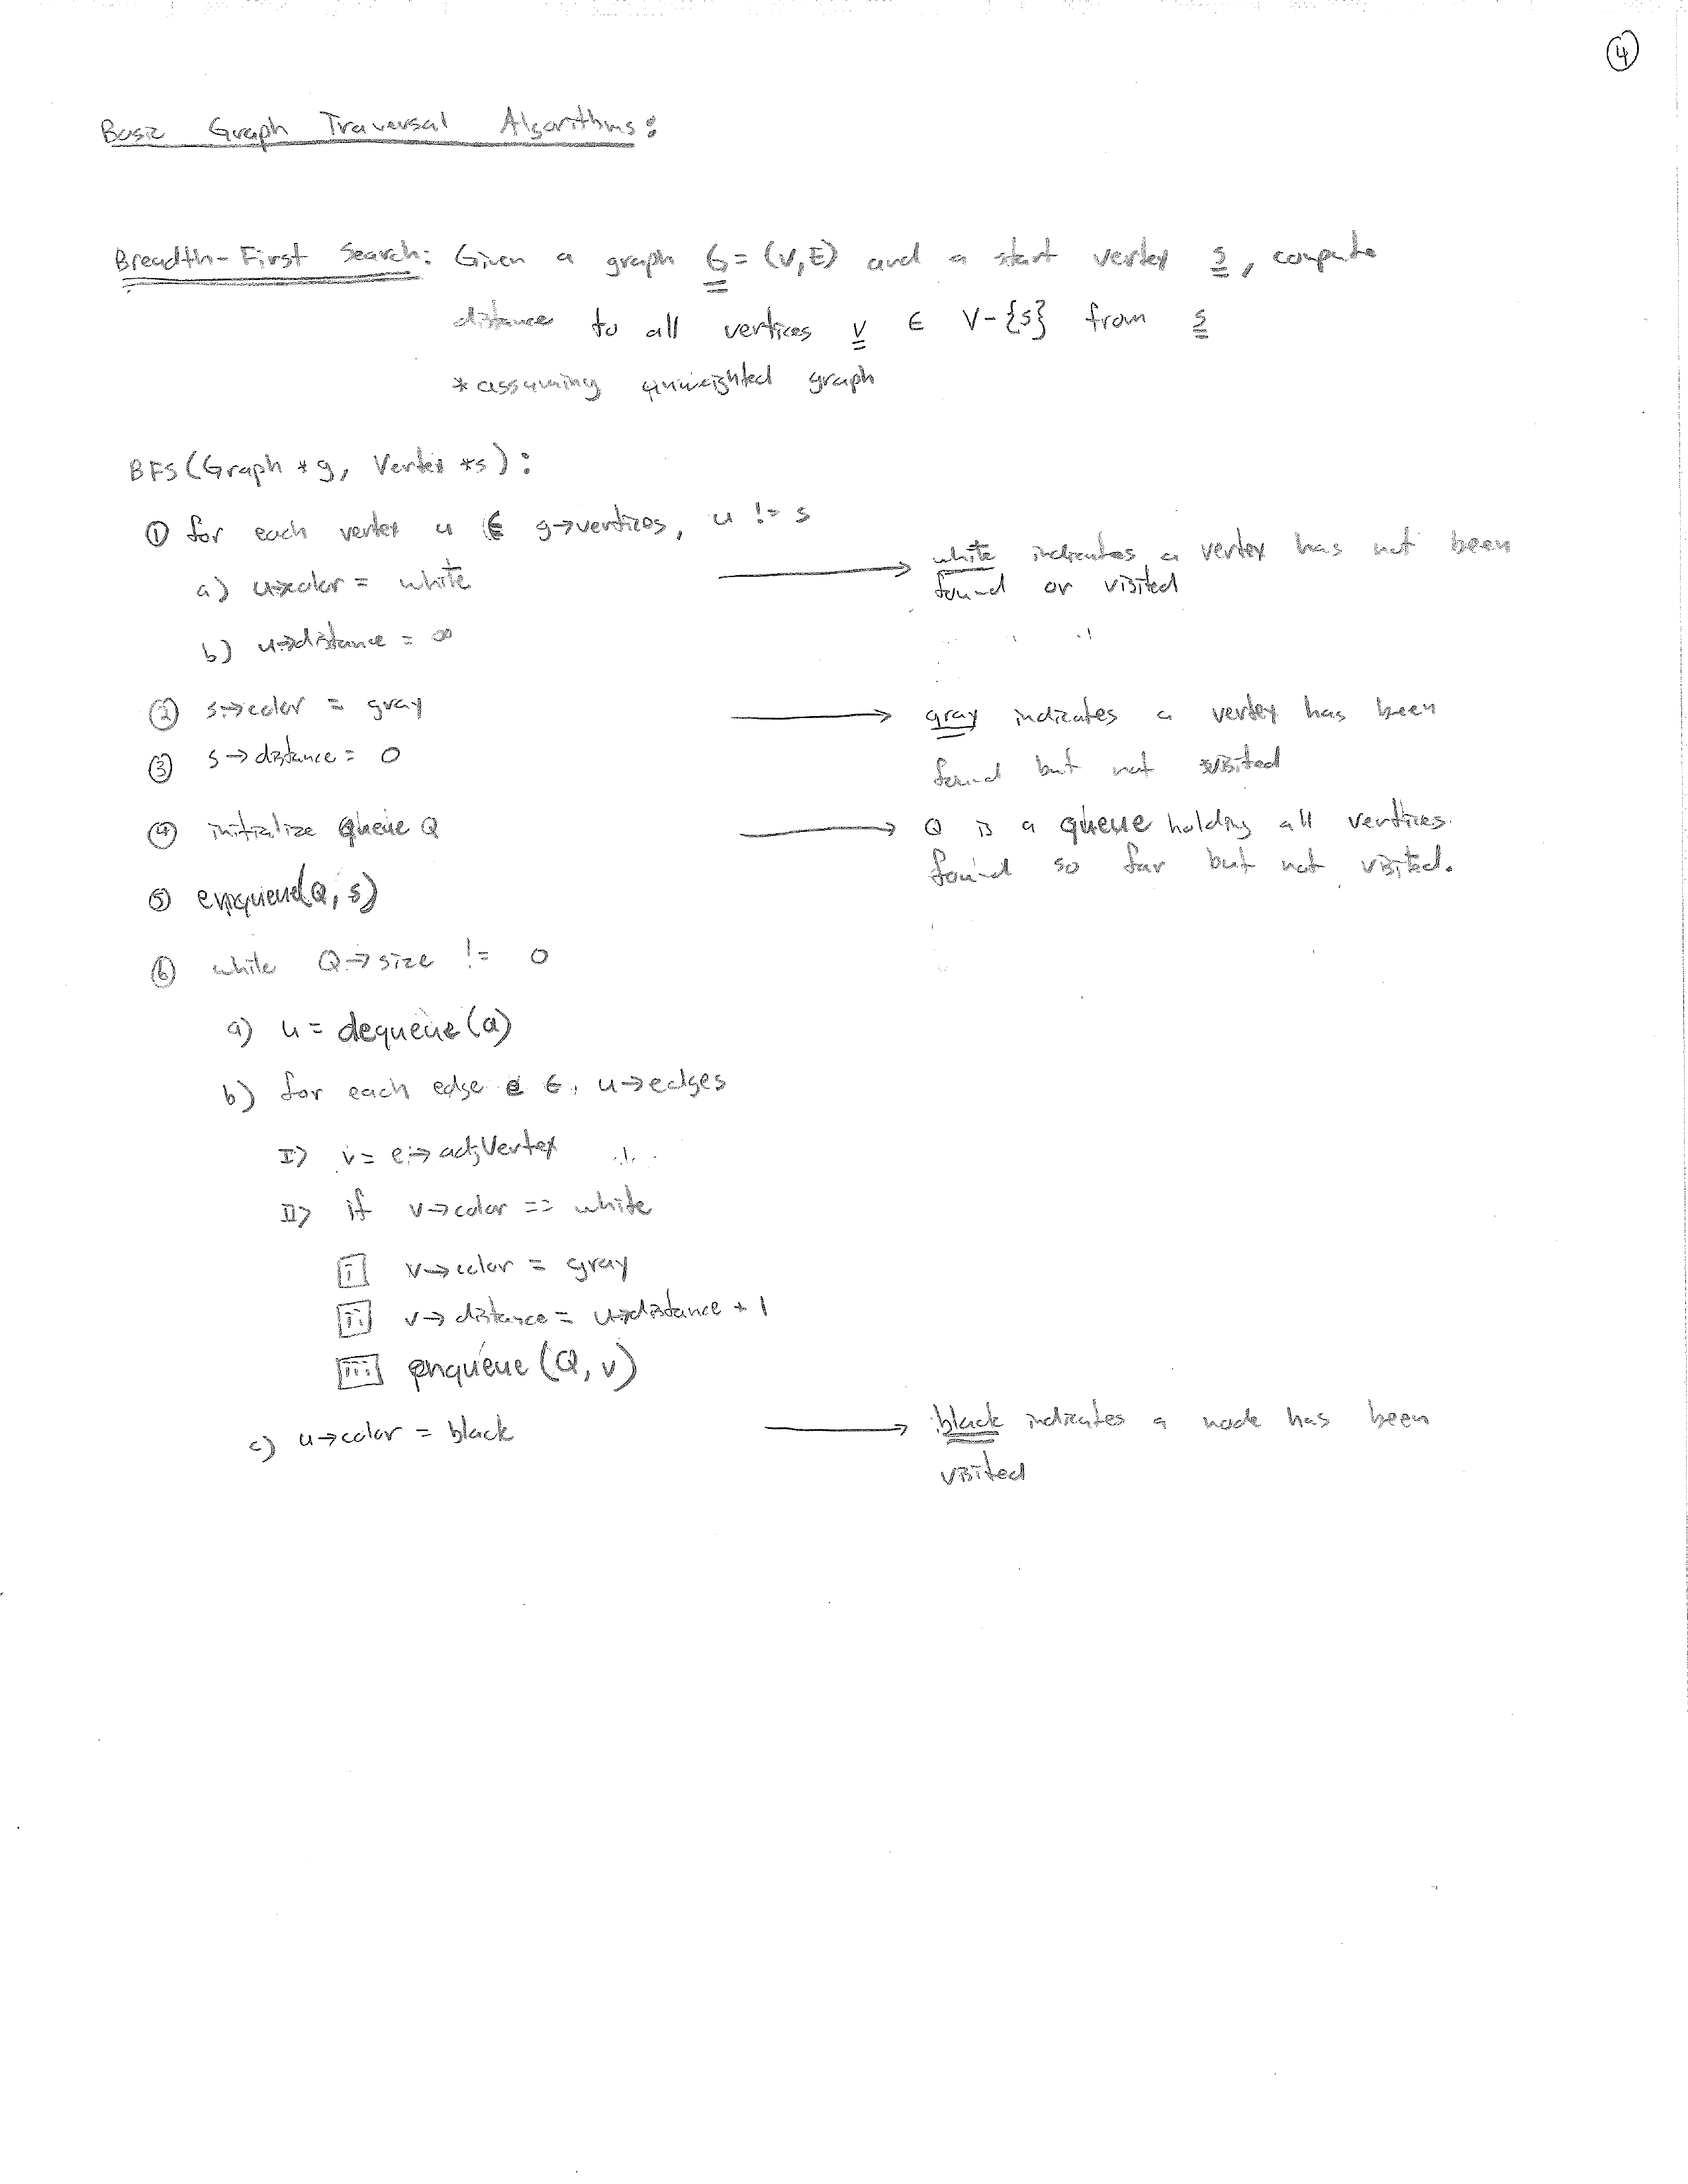 4
Basic Graph Traversal Algorithms:
Breadth-First Search: Given a graph G = (V,E) and a start vertex s, compute
distance to all vertices v ∈ V-{s} from s
*assuming unweighted graph
BFS(Graph *g, Vertex *s):
① for each vertex u ∈ g→vertices, u != s
a) u→color = white → white indicates a vertex has not been
found or visited
b) u→distance = ∞
② s→color = gray → gray indicates a vertex has been
③ s→distance = 0
found but not visited
④ initialize queue Q → Q is a queue holding all vertices
found so far but not visited.
⑤ enqueue(Q, s)
⑥ while Q→size != 0
a) u = dequeue(Q)
b) for each edge e ∈ u→edges
I) v = e→adjVertex
II) if v→color == white
i v→color = gray
ii v→distance = u→distance + 1
iii enqueue(Q, v)
c) u→color = black → black indicates a node has been
visited